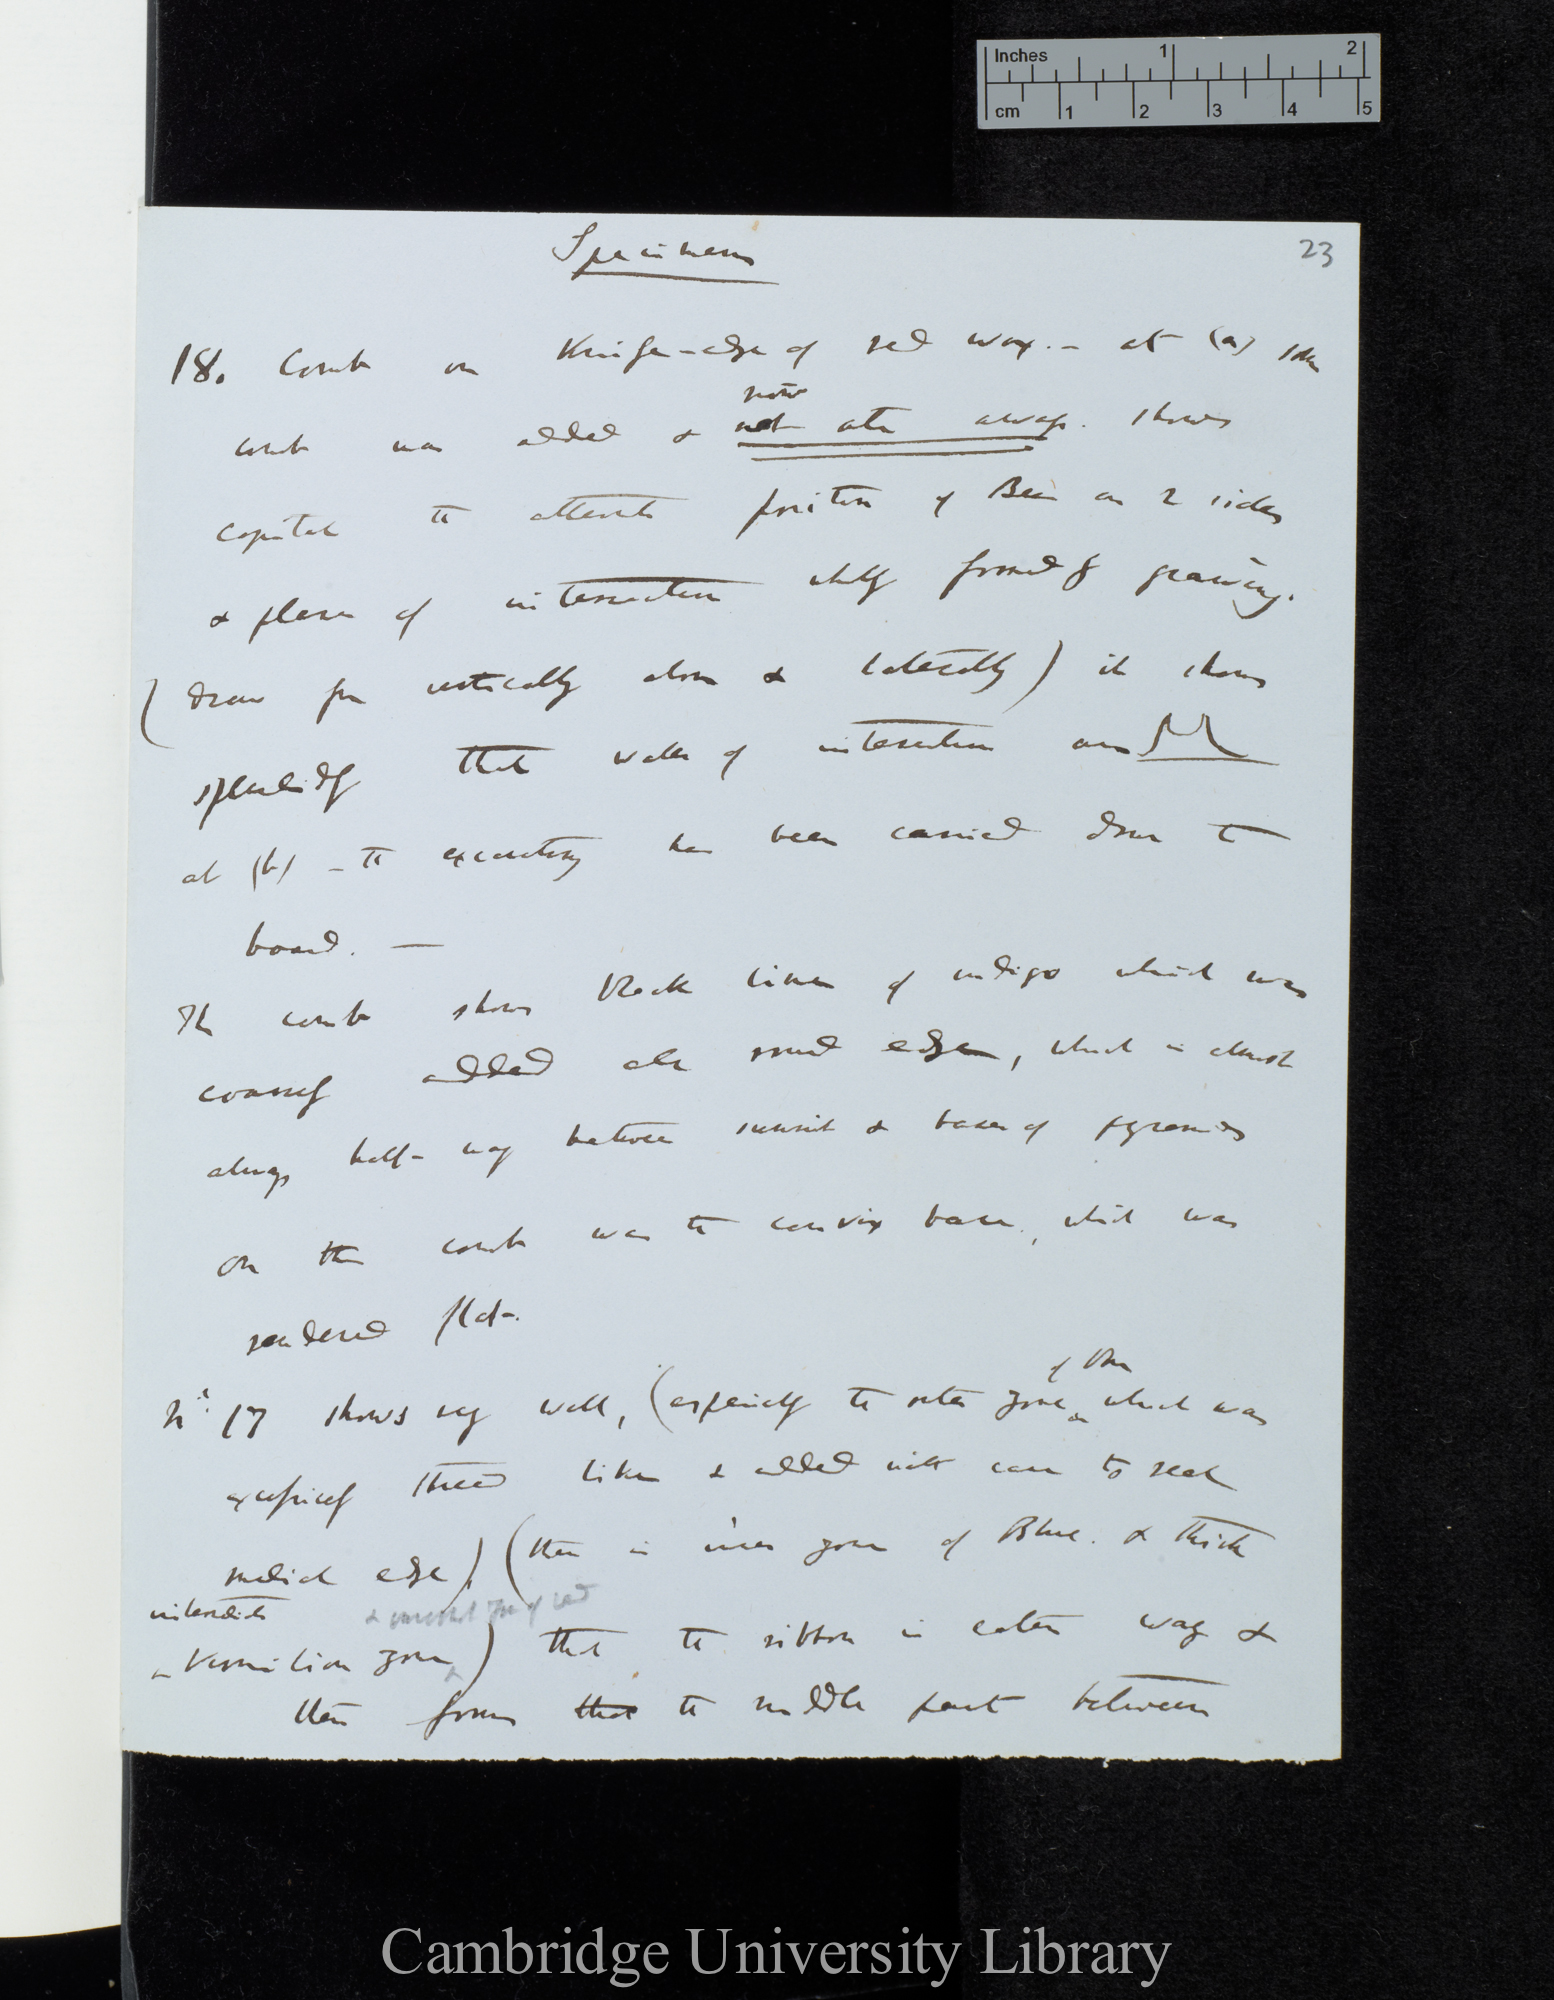 Inches 1 2
cm 1 2 3 4 5
23
Specimens
18. Comb on Knife-edge of red wax. – at (a) some
now
comb was added & not ate away. Shows
capital the alternate position of Bees on 2 sides
& plane of intersection wholly formed by gnawing.
(draw from vertically above & laterally) it shows
splendidly that walls of intersection are
at (b) – the excavation has been carried down to
board. —
The comb shows black lines of indigo which was
coarsely added all round edge, which is almost
always half-way between summit & bases of pyramids
on the comb was the convex base, which was
rendered flat.
of this
No. 17 shows very well, (especially the outer zone which was
thread like & added with care to each
edge) (there is inner zone of Blue. & thick
& zone of red
Vermilion zone) that the ribbon is eaten away &
then forms that the middle part between
Cambridge University Library